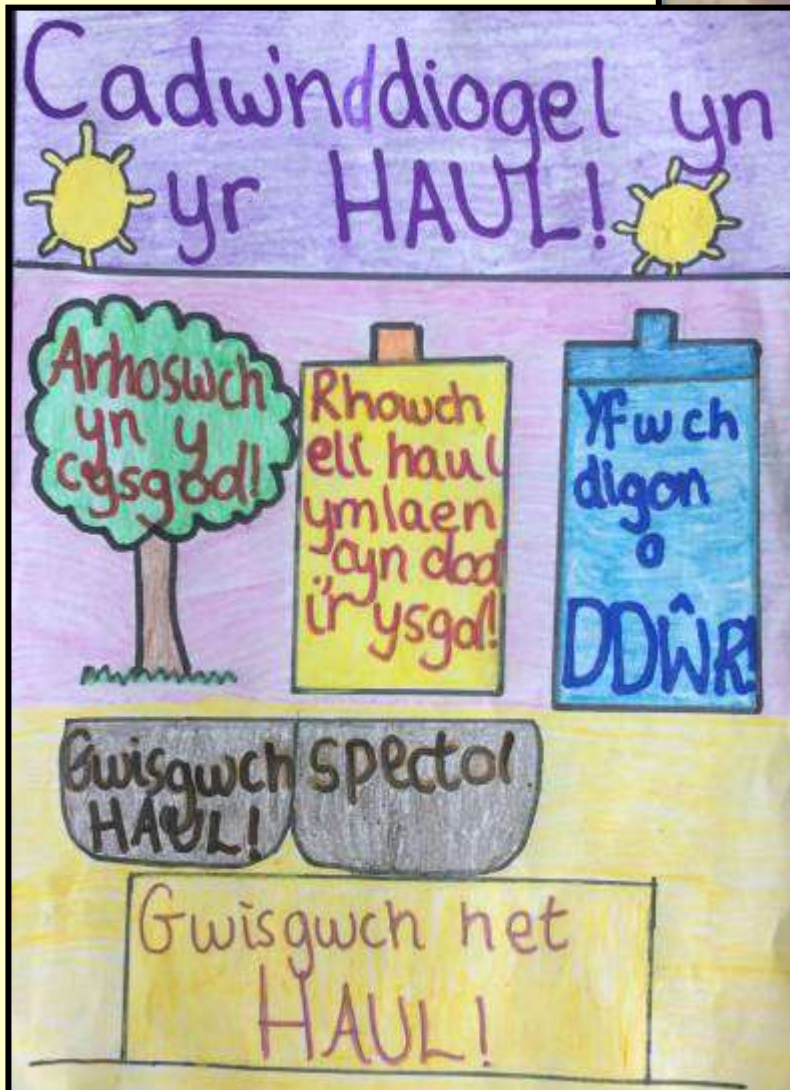 Cadw'n ddiogel yn
yr HAUL!
Arhoswch
yn y
cysgod!
Rhowch
eli haul
ymlaen
cyn dod
i'r ysgol!
Yfwch
digon
o
DDŴR!
Gwisgwch spectol
HAUL!
Gwisgwch het
HAUL!